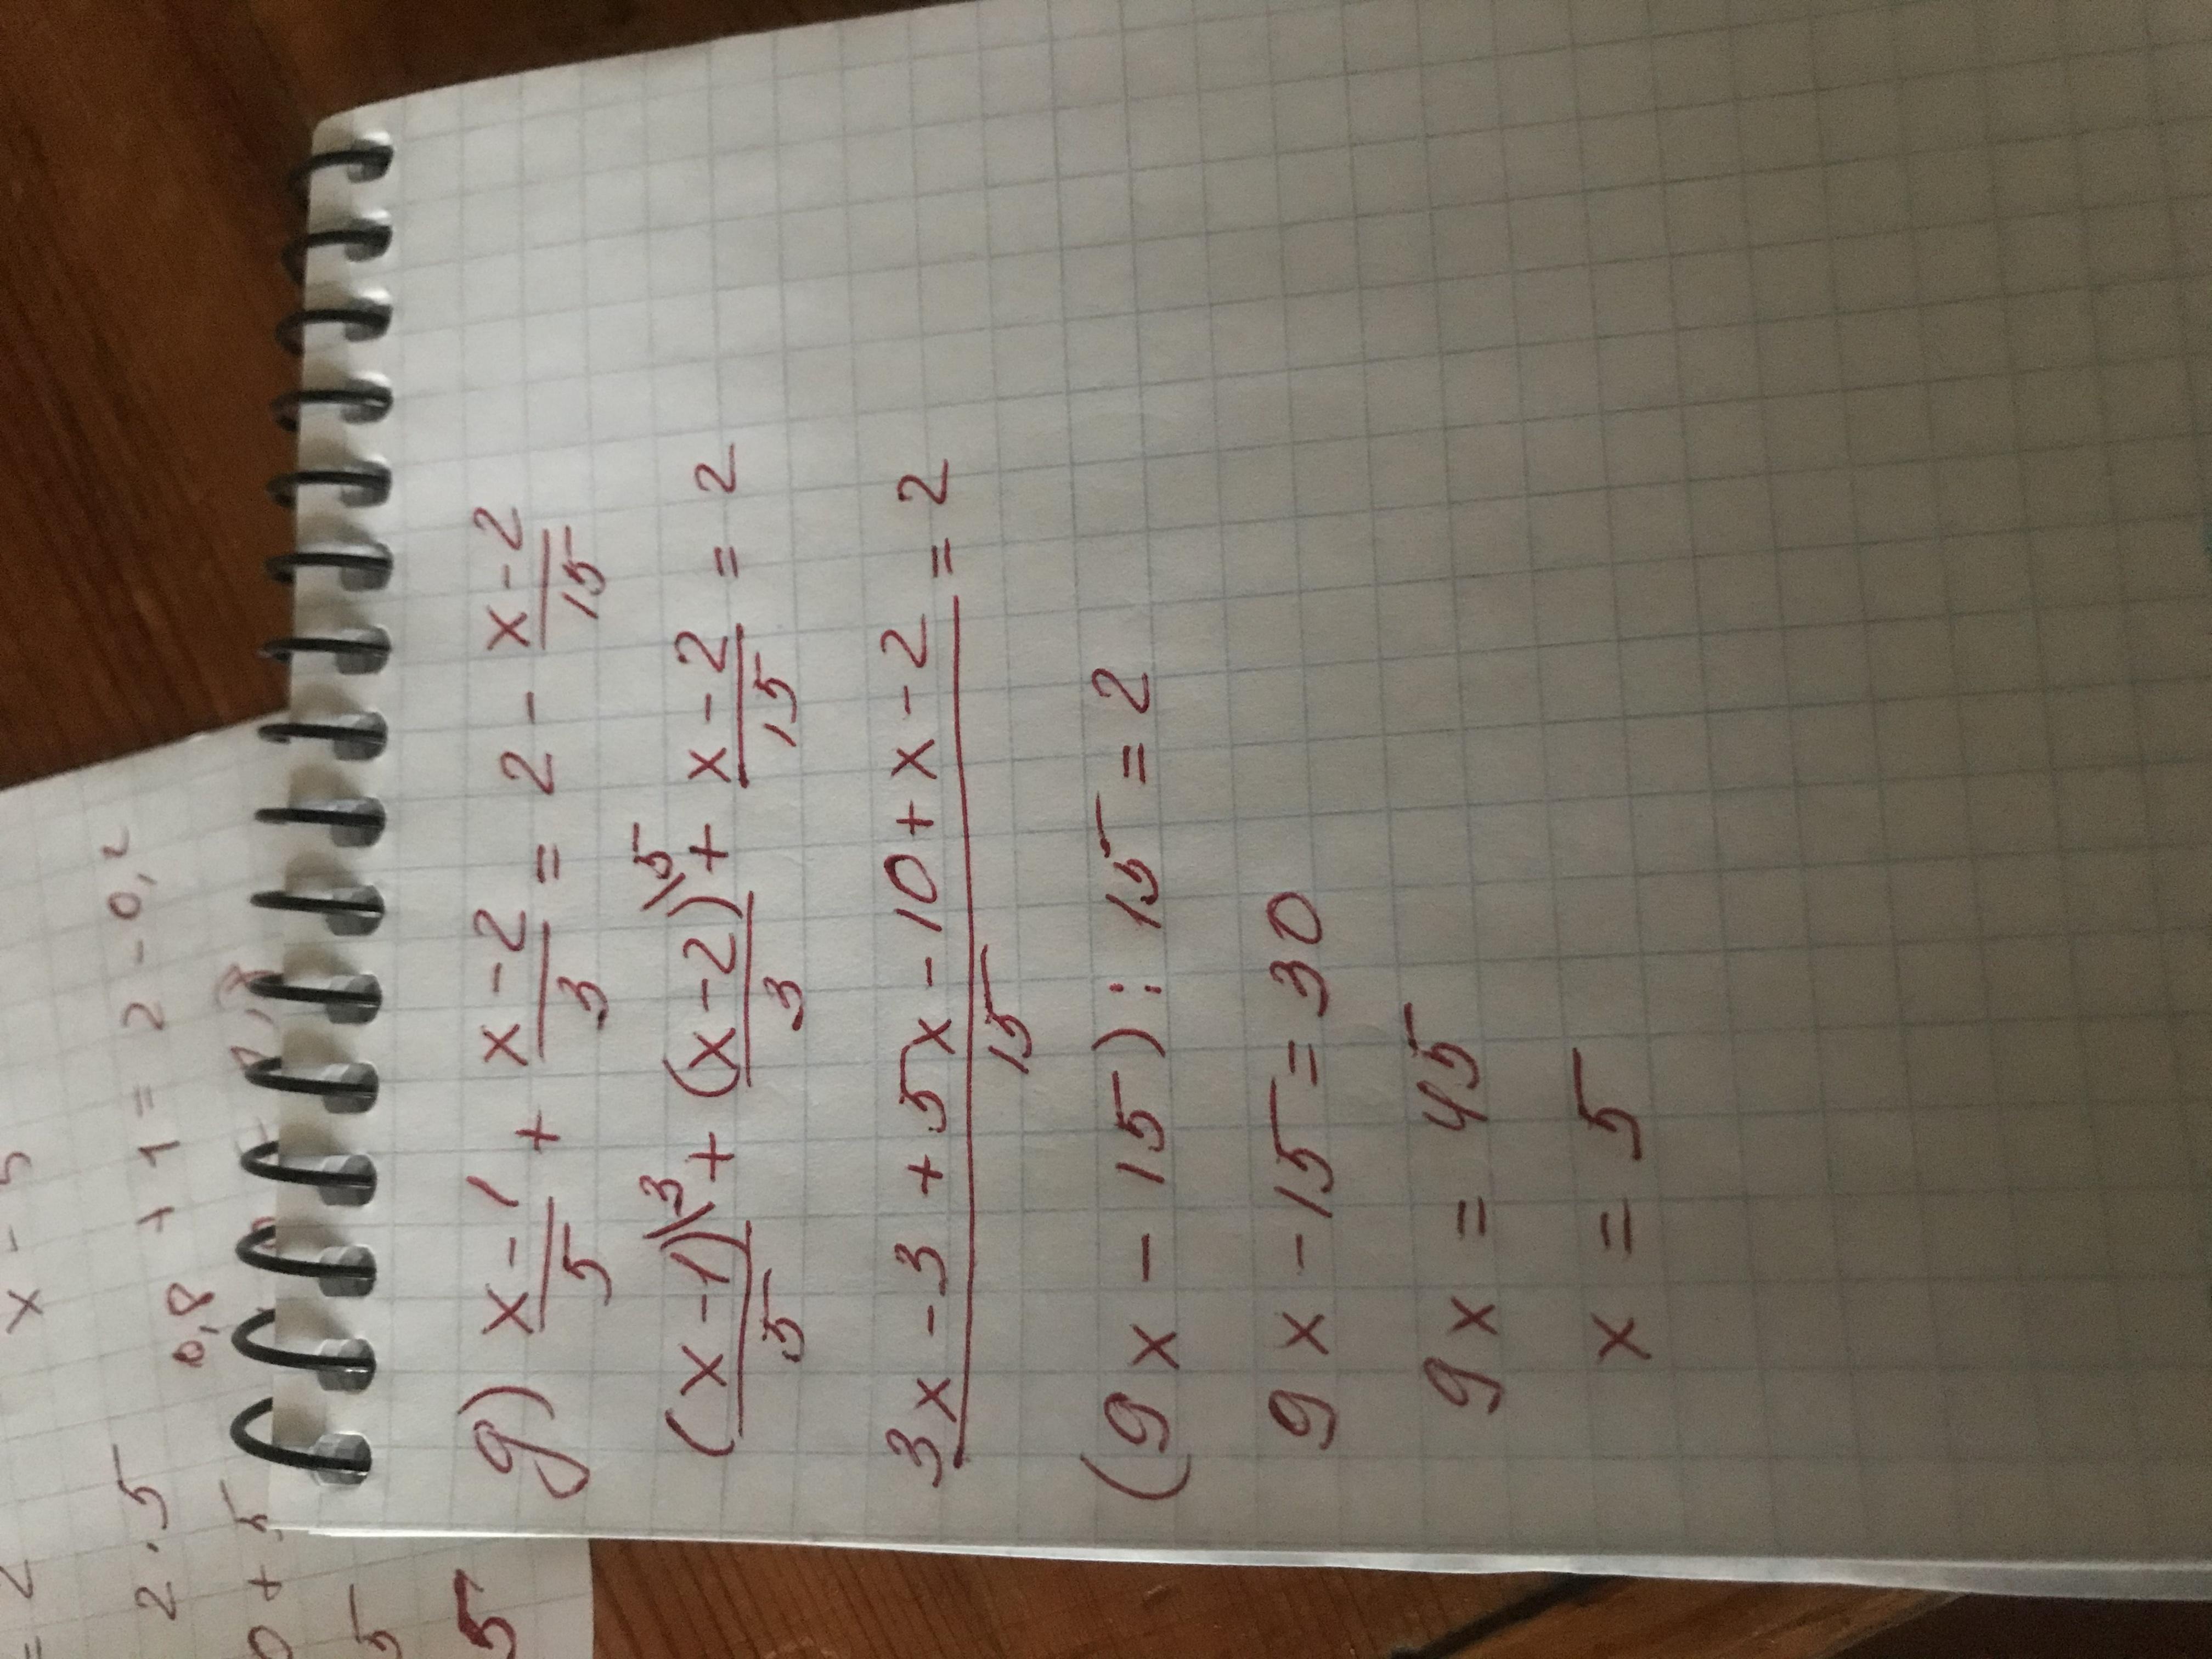 x - 5
+ 1 = 2 - 0,2
0,8
= 2
2 · 5
0 + 5
5
5
g) x-1/5 + x-2/3 = 2 - x-2/15
(x-1)\3/5 + (x-2)\5/3 + x-2/15 = 2
3x-3+5x-10+x-2/15 = 2
(9x - 15) : 15 = 2
9x - 15 = 30
9x = 45
x = 5